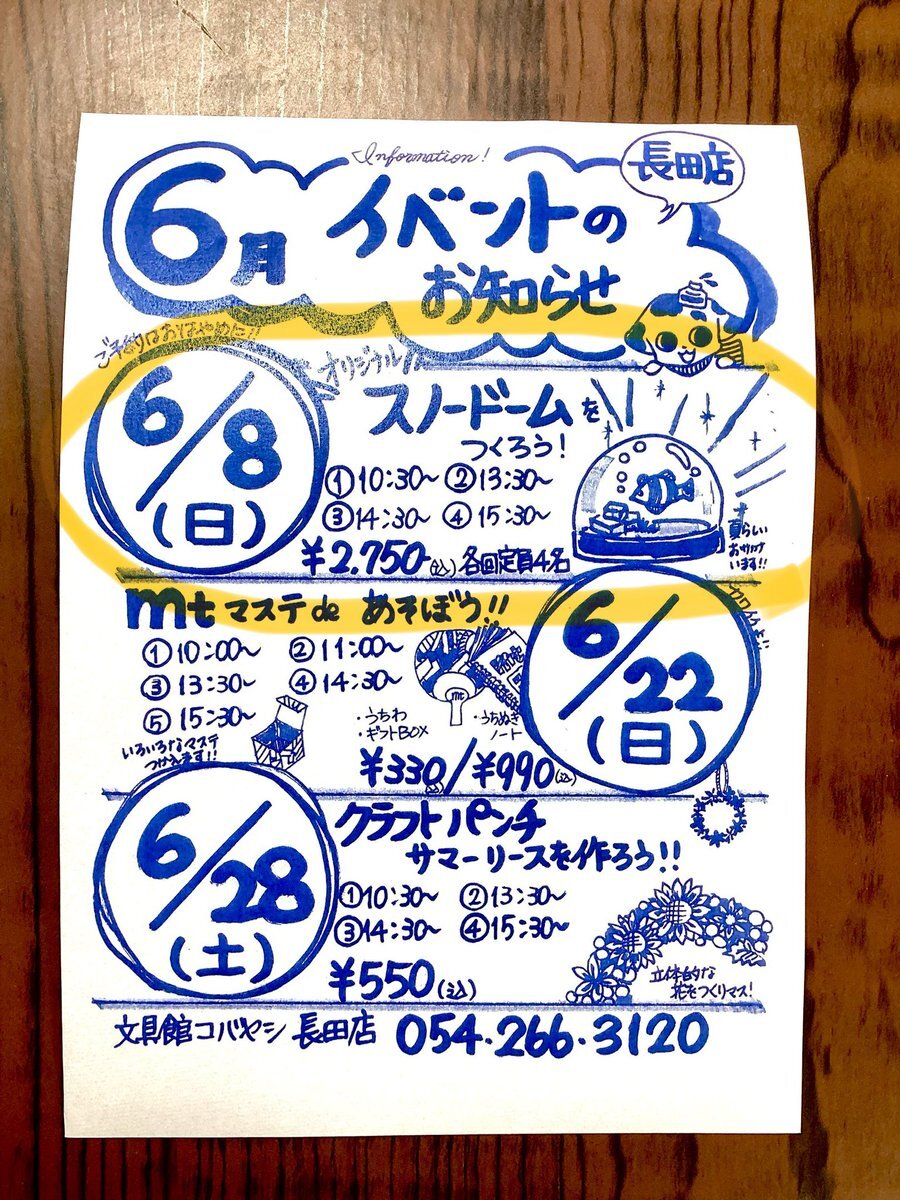 Information!
長田店
6月 イベントの
お知らせ
ご予約はおはやめに!!
6/8
(日)
オリジナル
スノードームを
つくろう!
①10:30~ ②13:30~
③14:30~ ④15:30~
¥2.750(込) 各回定員4名
夏らしい
おサカナ
います!!
mt マステde あそぼう!!
6/22
(日)
①10:00~ ②11:00~
③13:30~ ④14:30~
⑤15:30~
いろいろなマステ
つかえます!!
・うちわ ・うちぬき
・ギフトBOX ノート
¥330/¥990(込)
6/28
(土)
クラフトパンチ
サマーリースを作ろう!!
①10:30~ ②13:30~
③14:30~ ④15:30~
¥550(込)
立体的な
花をつくりマス!
文具館コバヤシ 長田店 054・266・3120